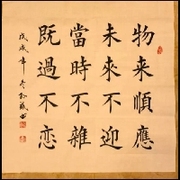 物来順應
未来不迎
當時不雜
既過不恋
戊戌年冬
書